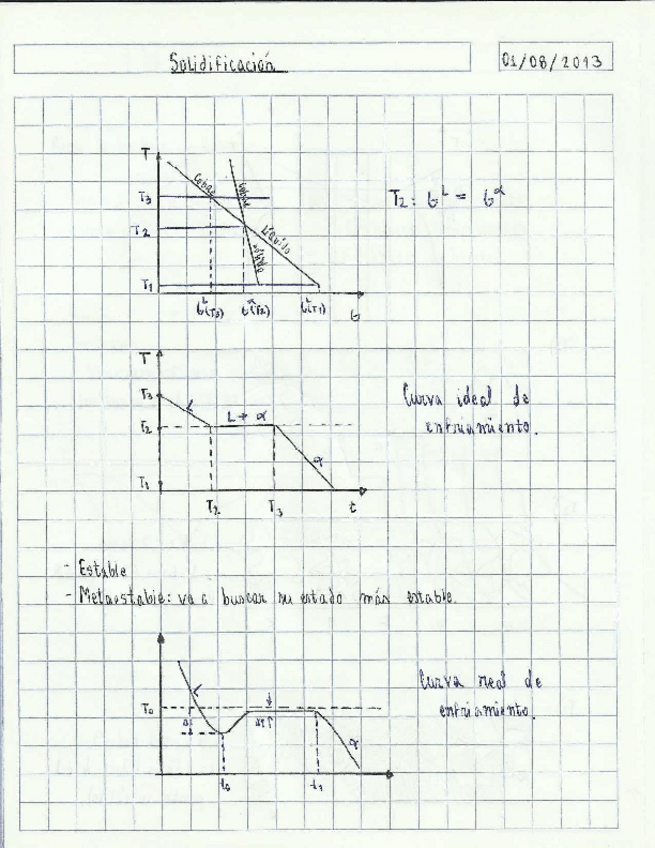 Solidificación
01/08/2013
T
T3
T2
T1
Cobre
Cobre
Líquido
Sólido
T2: G^L = G^α
G^L(T3) G^α(T2) G^L(T1) G
T
T3
T2
T1
L
L → α
α
T2 T3 t
Curva ideal de
enfriamiento.
- Estable
- Metaestable: va a buscar su estado más estable.
L
T0
ΔT
α
t0 t1
Curva real de
enfriamiento.